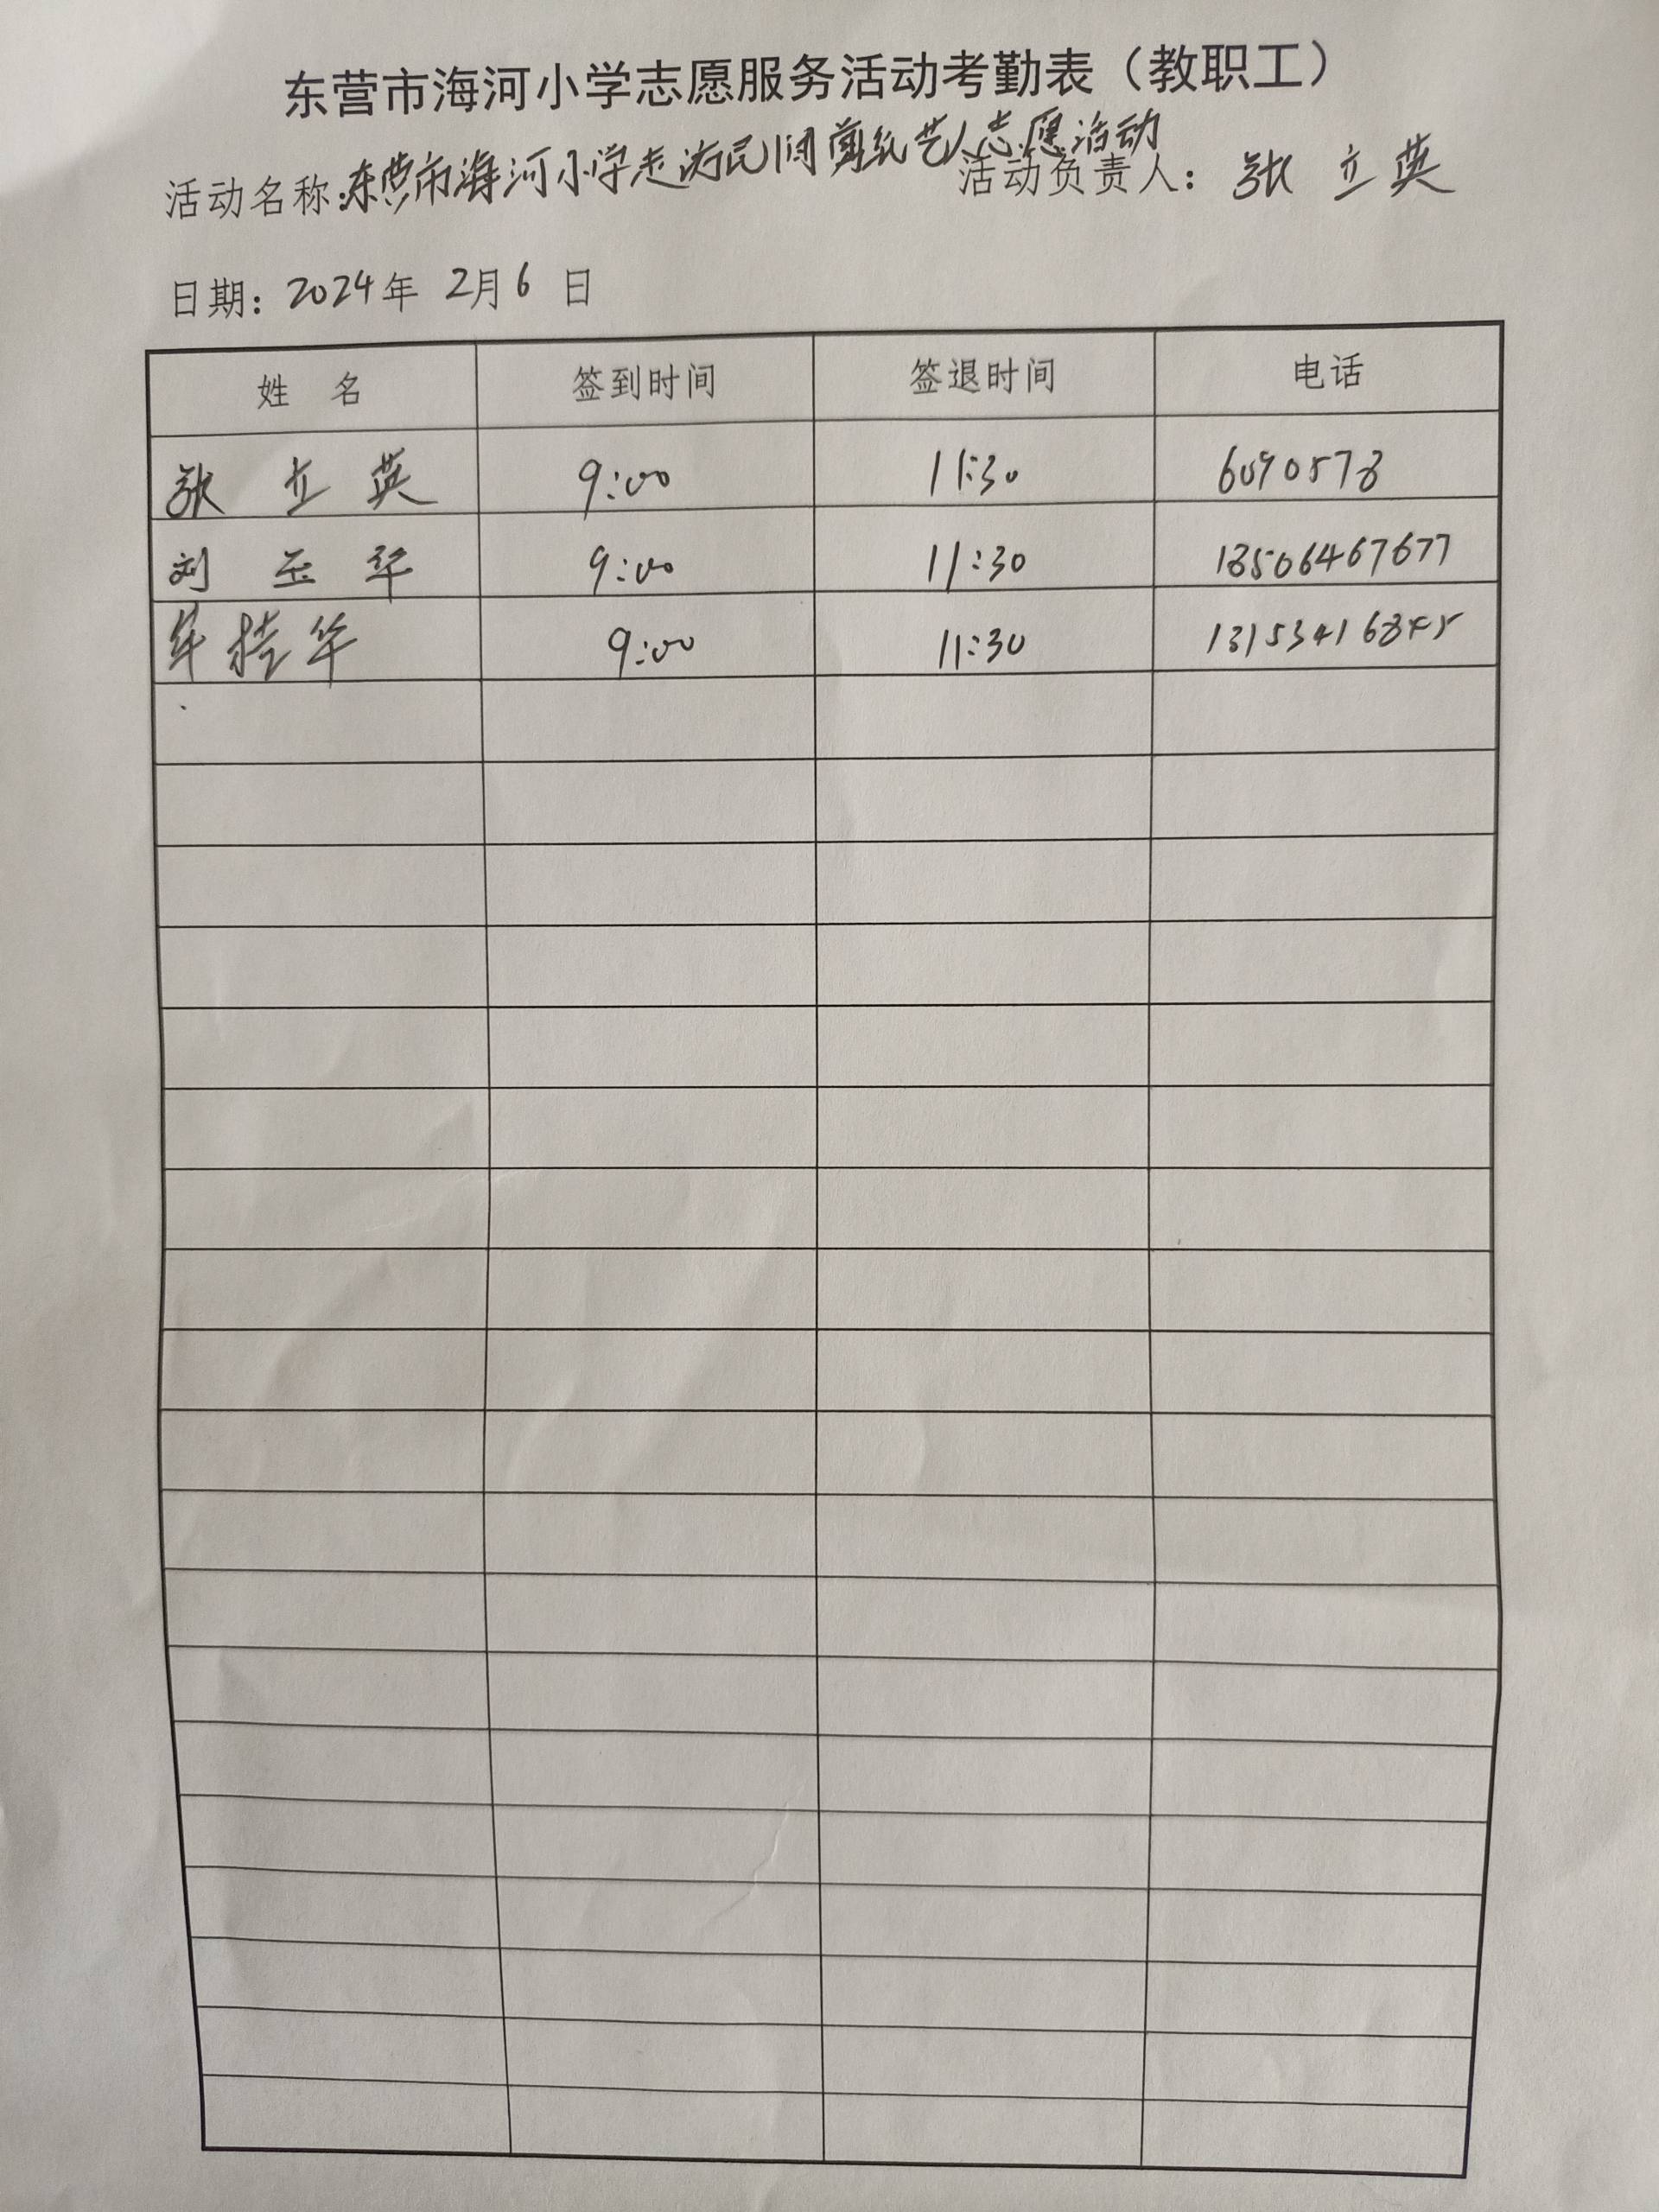 东营市海河小学志愿服务活动考勤表（教职工）
活动名称:东营市海河小学走访民间剪纸艺人志愿活动 活动负责人：张立英
日期：2024年 2月6 日
姓 名 签到时间 签退时间 电话
张立英 9:00 11:30 6090578
刘玉华 9:00 11:30 13506467677
桂华 9:00 11:30